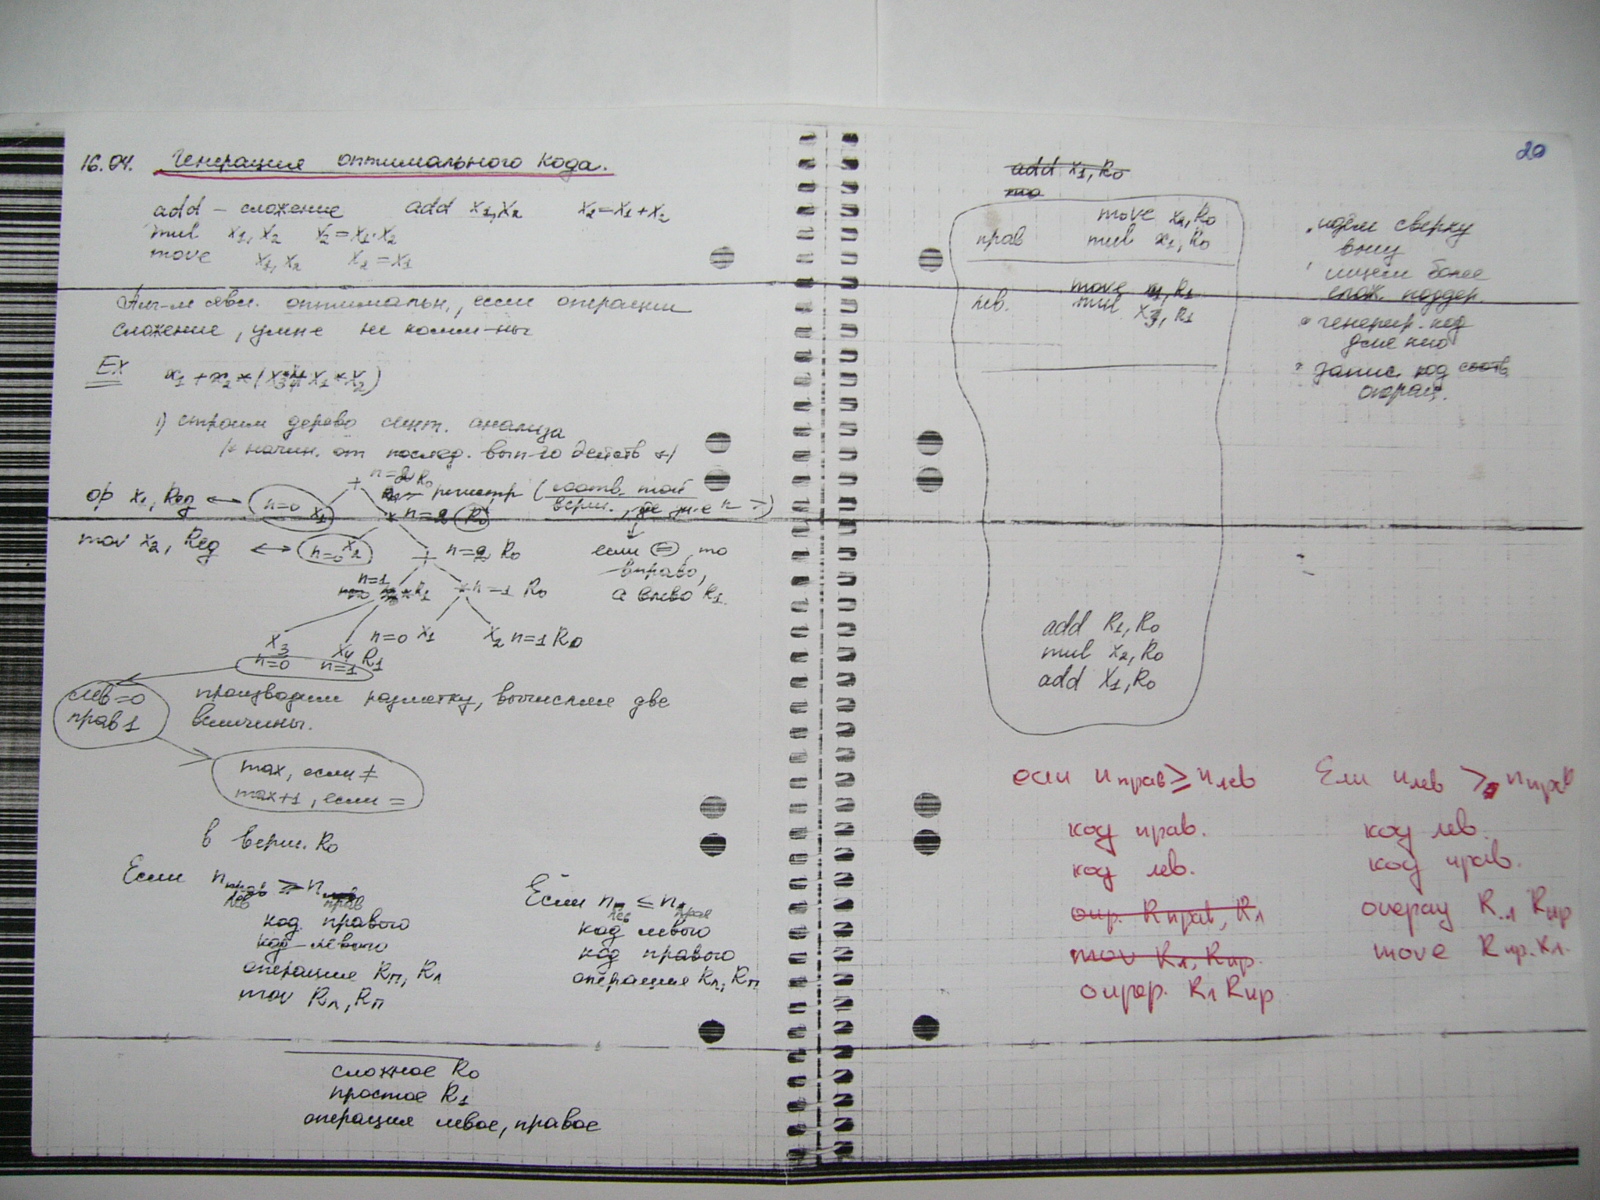 16.04. Генерация оптимального кода.
add – сложение add x1, x2 x2 = x1 + x2
mul x1, x2 x2 = x1 · x2
move x1, x2 x2 = x1
оптимальн., если операции
сложение, умн-е не комм-ны
Ex x1 + x2 * (x3 * x1 * x2)
1) строим дерево синт. анализа
/* начин. от послед. вып-го действ */
+ n=2 R0
op x1, Reg ↔ n=0 x1 * n=2 R0 регистр (соотв. той верш.
mov x2, Reg ↔ n=0 x2 + n=2 R0
если =, то
вправо,
а влево R1.
n=1 * R1 * n=1 R0
x3 n=0 x4 n=1 R1 n=0 x1 x2 n=1 R0
лев=0
прав 1
производим разметку, вычисляем две
величины.
max, если ≠
max+1, если =
в верш. R0
Если n лев ≥ n прав
код правого
код левого
операция Rп, Rл
mov Rл, Rп
Если n лев ≤ n прав
код левого
код правого
операция Rл, Rп
сложное R0
простое R1
операция левое, правое
20
add x1, R0
mo
прав move x2, R0
mul x1, R0
лев. move x4, R1
mul x3, R1
add R1, R0
mul x2, R0
add x1, R0
идём сверху
вниз
ищем более
слож. поддер.
генерир. код
для него
запис. код соотв.
операц.
если n прав ≥ n лев
код прав.
код лев.
опр. Rправ, Rл
mov Rл, Rпр.
опер. Rл Rпр
Если n лев > n прав
код лев.
код прав.
операц Rл Rпр
move Rпр. Rл.